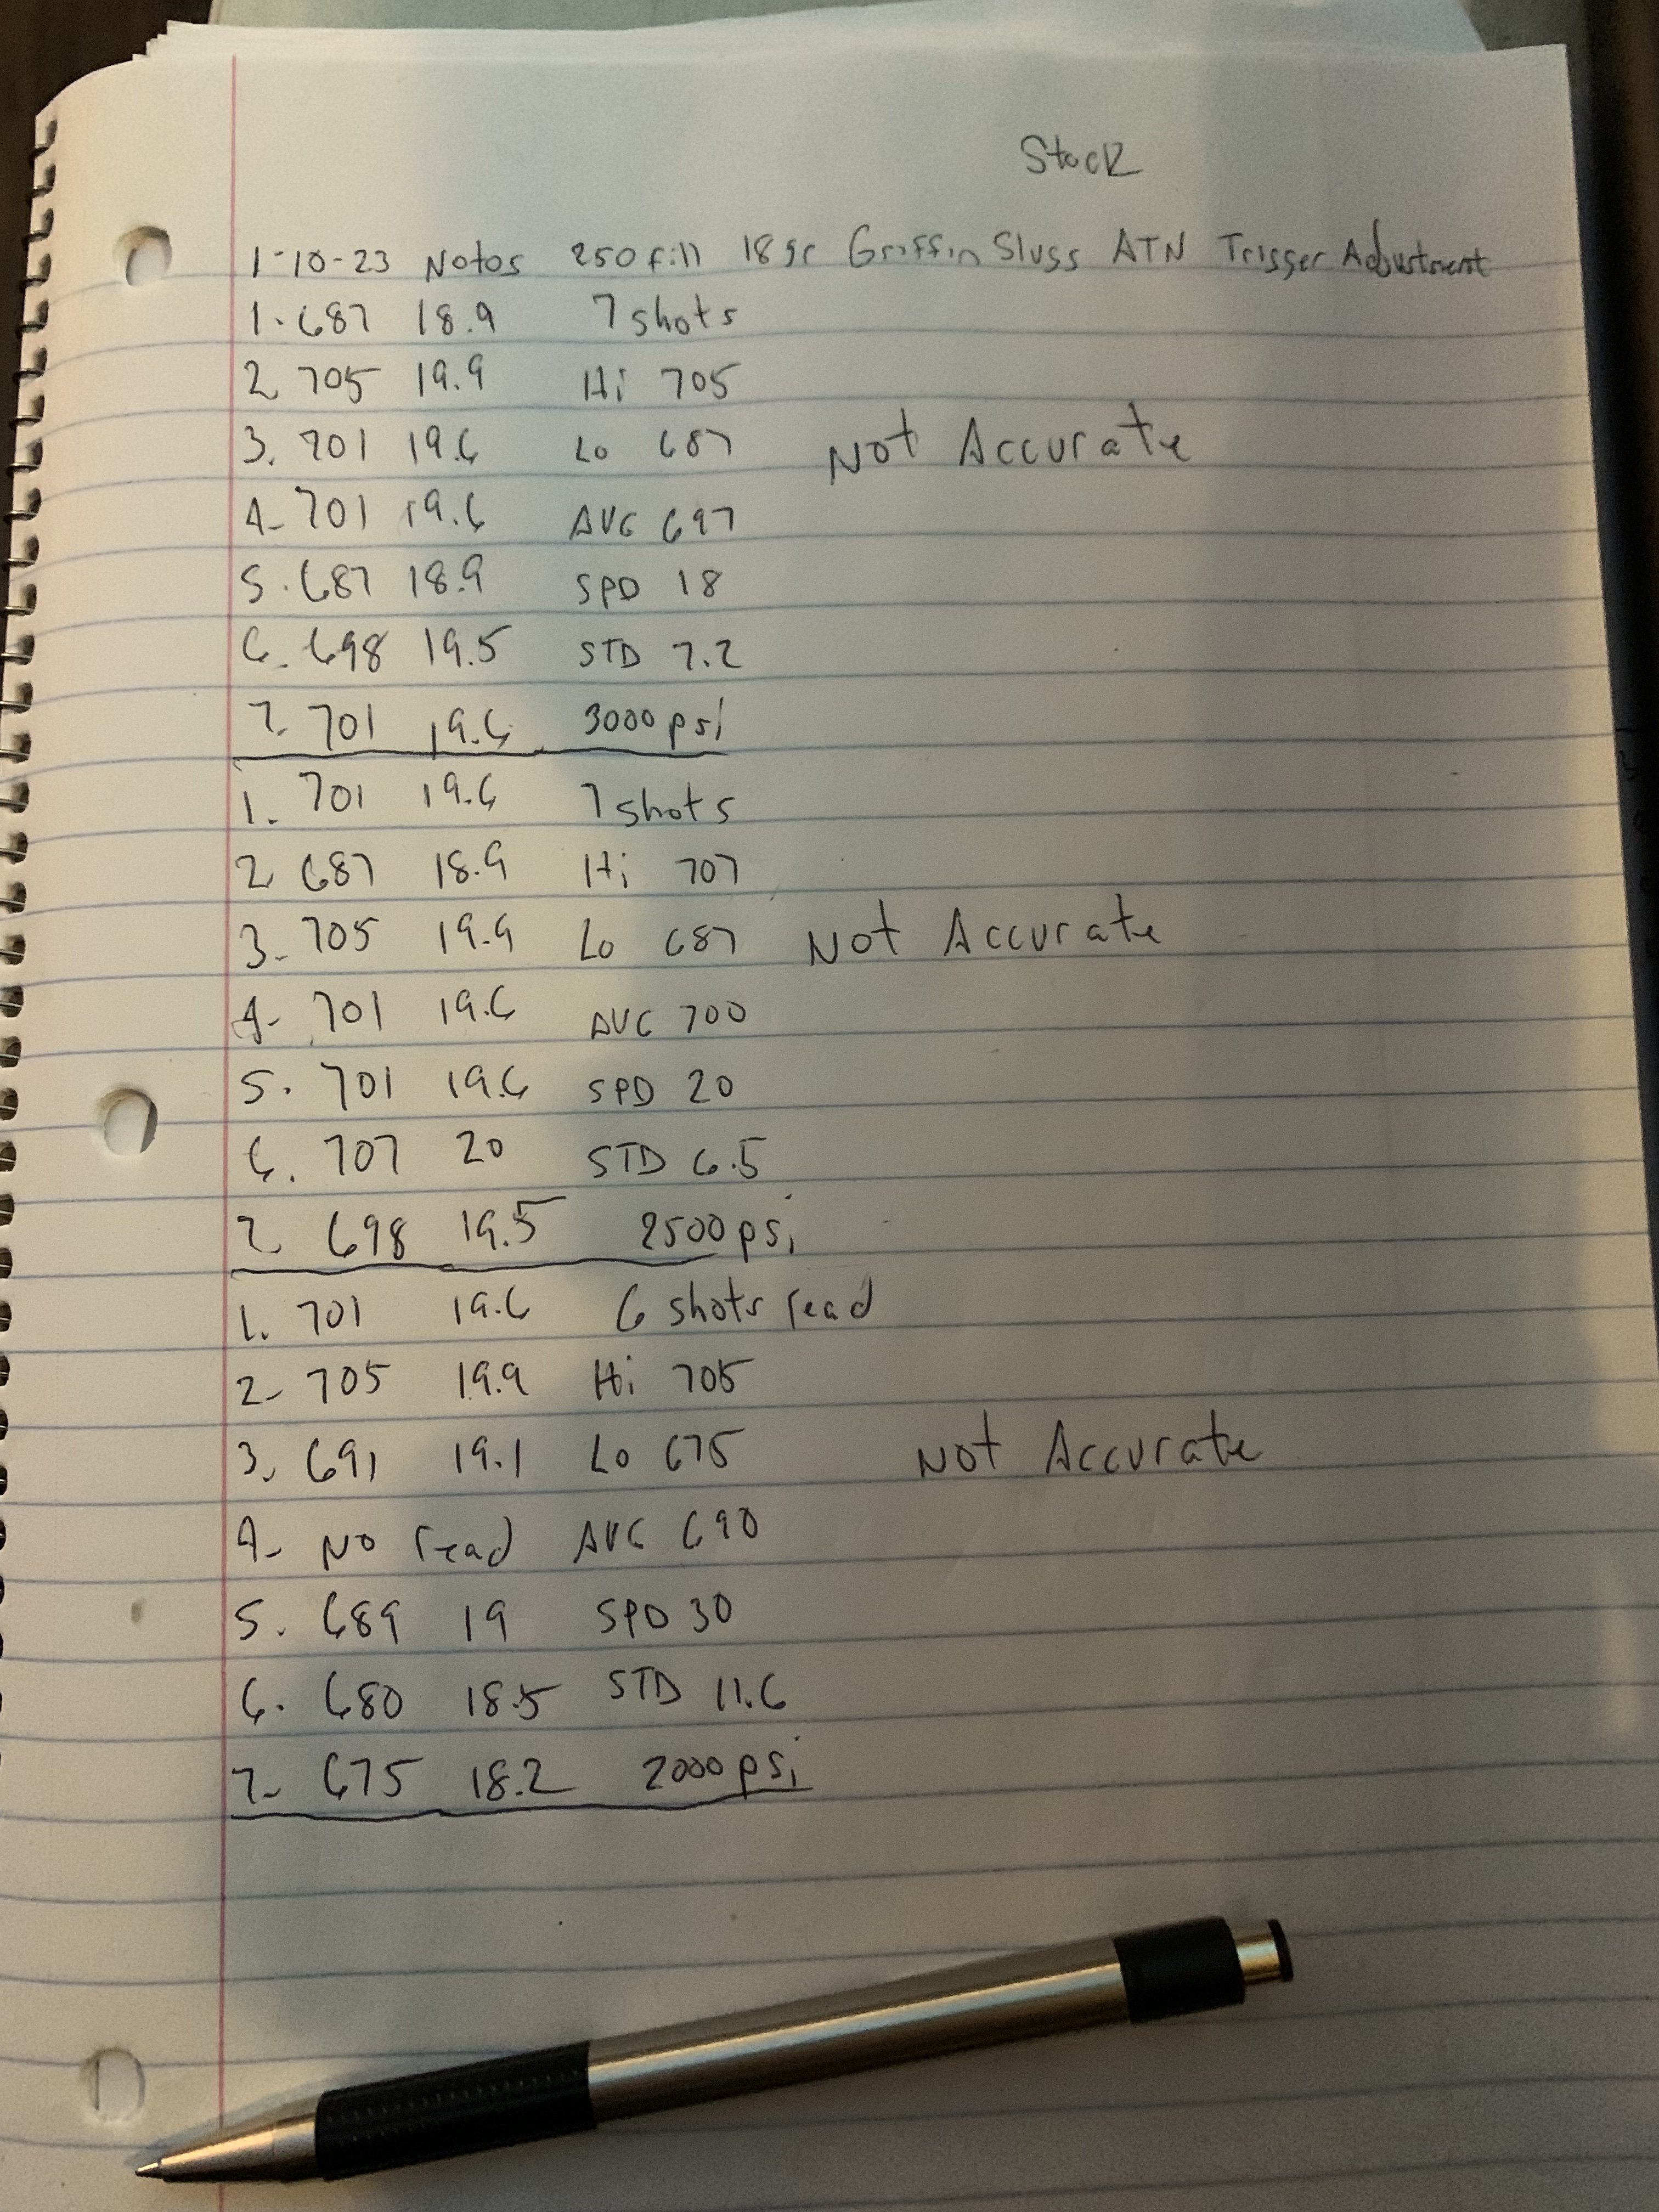 Stock
1-10-23 Notes 250 fill 18gr Griffin Slugs ATN Trigger Adjustment
1. 687 18.9 7 shots
2 705 19.9 Hi 705
3. 701 19.6 Lo 687 Not Accurate
4- 701 19.6 AVG 697
5. 687 18.9 SPD 18
6. 698 19.5 STD 7.2
7- 701 19.6 3000 psi
1. 701 19.6 7 shots
2 687 18.9 Hi 707
3- 705 19.9 Lo 687 Not Accurate
4- 701 19.6 AVG 700
5. 701 19.6 SPD 20
6. 707 20 STD 6.5
7 698 19.5 2500 psi
1. 701 19.6 6 shots read
2- 705 19.9 Hi 705
3. 691 19.1 Lo 675 Not Accurate
4- No read AVG 690
5. 689 19 SPD 30
6. 680 18.5 STD 11.6
7- 675 18.2 2000 psi